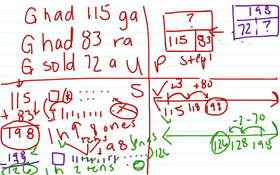 G had 115 ga
G had 83 ra
G sold 72 a
U
P
Step 1
?
115 83
198
72 ?
S
115
+ 83
198
198
126
1 h 9 8 ones
1 h 2 tens
126
+3 +80
115 118 198
-2 -70
126 128 198